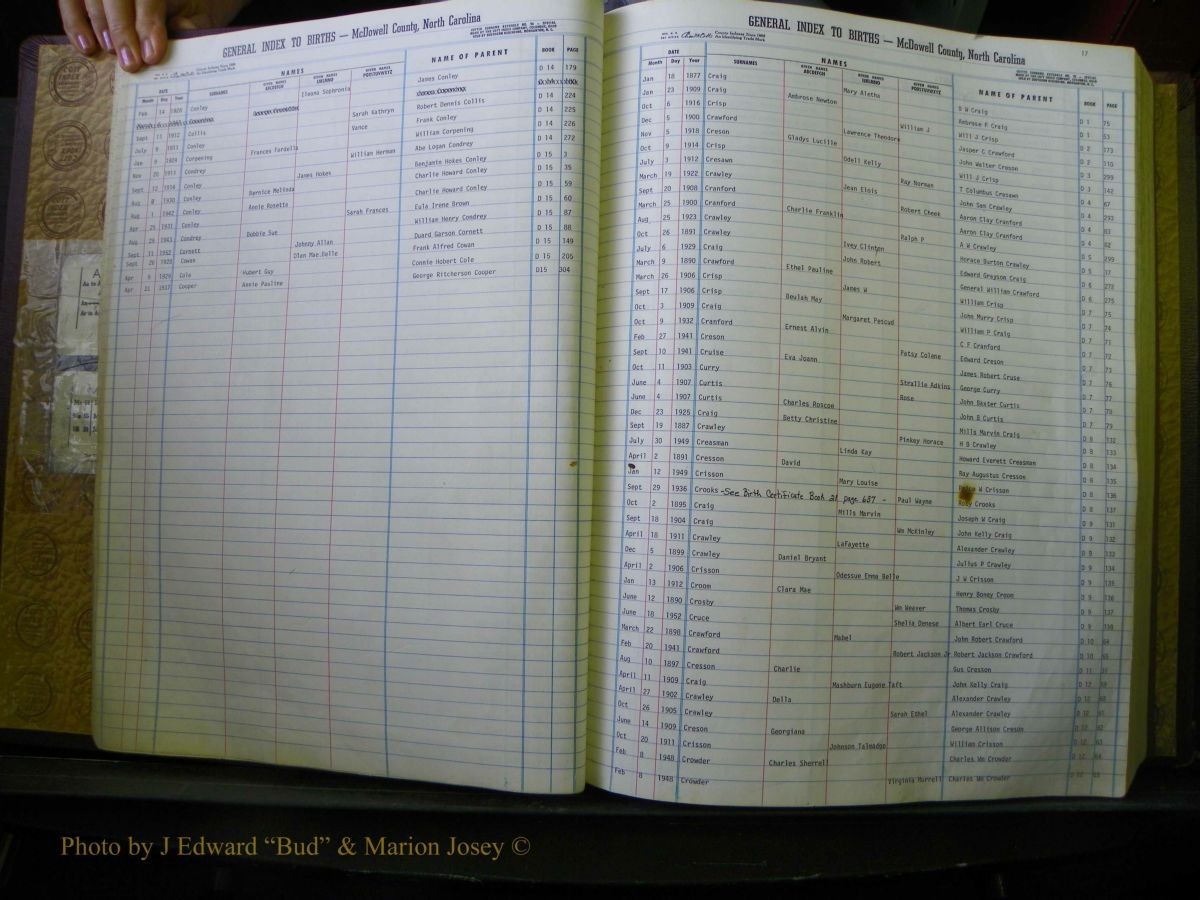 GENERAL INDEX TO BIRTHS — McDowell County, North Carolina
DATE NAMES NAME OF PARENT BOOK PAGE
Month Day Year SURNAMES GIVEN NAMES ABCDEFGH GIVEN NAMES IJKLMNO GIVEN NAMES PQRSTUVWXYZ
Feb 14 1926 Conley Ileoma Sophronia James Conley D 14 179
Sept 11 1912 Collis Sarah Kathryn Robert Dennis Collis D 14 224
July 9 1911 Conley Vance Frank Conley D 14 225
Jan 8 1924 Corpening Frances Fardella William Corpening D 14 226
Nov 20 1911 Condrey William Herman Abe Logan Condrey D 14 272
Sept 12 1914 Conley James Hokes Benjamin Hokes Conley D 15 3
Aug 8 1930 Conley Bernice Melinda Charlie Howard Conley D 15 35
Aug 1 1942 Conley Annie Rosette Charlie Howard Conley D 15 59
Apr 25 1931 Conley Sarah Frances Eula Irene Brown D 15 60
Aug 26 1943 Condrey Bobbie Sue William Henry Condrey D 15 87
Sept 11 1952 Cornett Johnny Allan Duard Garson Cornett D 15 88
Sept 20 1920 Cowan Olen Mae.Belle Frank Alfred Cowan D 15 149
Apr 6 1929 Cole Hubert Guy Connie Hobert Cole D 15 205
Apr 21 1917 Cooper Annie Pauline George Ritcherson Cooper D15 304
GENERAL INDEX TO BIRTHS — McDowell County, North Carolina 17
DATE NAMES NAME OF PARENT BOOK PAGE
Month Day Year SURNAMES GIVEN NAMES ABCDEFGH GIVEN NAMES IJKLMNO GIVEN NAMES PQRSTUVWXYZ
Jan 18 1877 Craig Mary Aletha D W Craig D 1 75
Jan 23 1909 Craig Ambrose Newton Ambrose F Craig D 1 53
Oct 6 1916 Crisp William J Will J Crisp D 2 173
Dec 5 1900 Crawford Lawrence Theodore Jasper C Crawford D 2 110
Nov 5 1918 Creson Gladys Lucille John Walter Creson D 3 299
Oct 9 1914 Crisp Odell Kelly Will J Crisp D 3 142
July 3 1912 Cresawn Ray Norman T Columbus Cresawn D 4 67
March 19 1922 Crawley Jean Elois John Sam Crawley D 4 293
Sept 20 1908 Cranford Robert Cheek Aaron Clay Cranford D 4 83
March 25 1900 Cranford Charlie Franklin Aaron Clay Cranford D 4 82
Aug 25 1923 Crawley Ralph P A W Crawley D 5 299
Oct 26 1891 Crawley Ivey Clinton Horace Burton Crawley D 5 17
July 6 1929 Craig John Robert Edward Grayson Craig D 6 272
March 9 1890 Crawford Ethel Pauline General William Crawford D 6 275
March 26 1906 Crisp James W William Crisp D 7 75
Sept 17 1906 Crisp Beulah May John Murry Crisp D 7 74
Oct 3 1909 Craig Margaret Pescud William P Craig D 7 71
Oct 9 1932 Cranford Ernest Alvin C F Cranford D 7 72
Feb 27 1941 Creson Patsy Colene Edward Creson D 7 73
Sept 10 1941 Cruise Eva Joann James Robert Cruse D 7 76
Oct 11 1903 Curry Strallie Adkins George Curry D 7 77
June 4 1907 Curtis Rose John Baxter Curtis D 7 78
June 4 1907 Curtis Charles Roscoe John B Curtis D 7 79
Dec 23 1925 Craig Betty Christine Mills Marvin Craig D 8 132
Sept 19 1887 Crawley Pinkey Horace H B Crawley D 8 133
July 30 1949 Creasman Linda Kay Howard Everett Creasman D 8 134
April 2 1891 Cresson David Ray Augustus Cresson D 8 135
Jan 12 1949 Crisson Mary Louise W Crisson D 8 136
Sept 29 1936 Crooks - See Birth Certificate Book 21 page 637 - Paul Wayne Crooks D 8 137
Oct 2 1895 Craig Mills Marvin Joseph W Craig D 9 131
Sept 18 1904 Craig Wm McKinley John Kelly Craig D 9 132
April 18 1911 Crawley LaFayette Alexander Crawley D 9 133
Dec 5 1899 Crawley Daniel Bryant Julius P Crawley D 9 134
April 2 1906 Crisson Odessue Emma Belle J W Crisson D 9 135
Jan 13 1912 Croom Clara Mae Henry Boney Croom D 9 136
June 12 1890 Crosby Wm Weaver Thomas Crosby D 9 137
June 18 1952 Cruce Shelia Denese Albert Earl Cruce D 9 138
March 22 1898 Crawford Mabel John Robert Crawford D 10 64
Feb 20 1941 Crawford Robert Jackson Jr Robert Jackson Crawford D 10 65
Aug 10 1897 Cresson Charlie Gus Cresson D 11
April 11 1909 Craig Mashburn Eugene Taft John Kelly Craig D 12 59
April 27 1902 Crawley Della Alexander Crawley D 12 60
Oct 26 1905 Crawley Sarah Ethel Alexander Crawley D 12 61
June 14 1909 Creson Georgiana George Allison Creson D 12 62
Oct 20 1911 Crisson Johnson Talmadge William Crisson D 12 63
Feb 8 1948 Crowder Charles Sherrell Charles Wm Crowder D 12 64
Feb 8 1948 Crowder Virginia Murrell Charles Wm Crowder D 12 65
Photo by J Edward “Bud” & Marion Josey ©